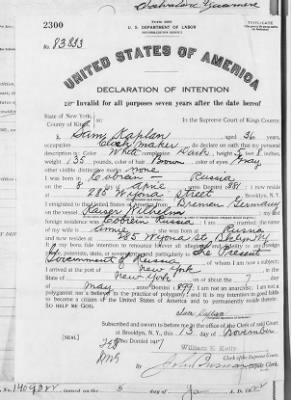 2300
Form 2203
U. S. DEPARTMENT OF LABOR
NATURALIZATION SERVICE
No. 83233
UNITED STATES OF AMERICA
DECLARATION OF INTENTION
Invalid for all purposes seven years after the date hereof
State of New York,
County of Kings
In the Supreme Court of Kings County.
I, Sam Kaplan, aged 36 years,
occupation maker, do declare on oath that my personal
description is: Color White, complexion Dark, height 5 feet 8 inches,
weight 135 pounds, color of hair Brown, color of eyes
other visible distinctive marks none
I was born in Russia
on the 8 day of April, anno Domini 1881; I now reside
at 285 Street, Brooklyn, N.Y.
I emigrated to the United States of America from Bremen Germany
on the vessel Kaiser Wilhelm; my last
foreign residence was Russia; I am married; the name
of my wife is Annie; she was born in Russia
and now resides at 285 St. Bklyn NY
It is my bona fide intention to renounce forever all allegiance and fidelity to any foreign
prince, potentate, state, or sovereignty, and particularly to The Present
Government of Russia, of whom I am now a subject;
I arrived at the port of New York, in the
State of New York, on or about the 7 day
of May, anno Domini 1899; I am not an anarchist; I am not a
polygamist nor a believer in the practice of polygamy; and it is my intention in good faith
to become a citizen of the United States of America and to permanently reside therein:
SO HELP ME GOD.
Sam Kaplan
Subscribed and sworn to before me in the office of the Clerk of said Court
at Brooklyn, N. Y., this 13 day of November
anno Domini 1917
[SEAL]
William E. Kelly
Clerk of the Supreme Court.
issued on the 5 day of Jan A. D. 1922